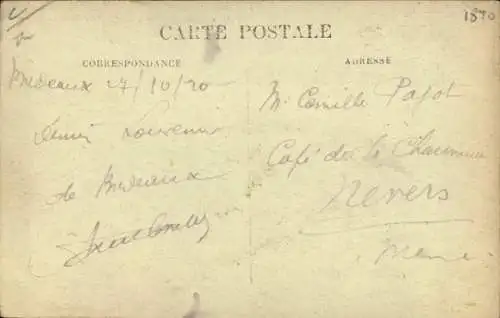 1870
CARTE POSTALE
CORRESPONDANCE
ADRESSE
Bordeaux 27/10/20
souvenir
de Bordeaux
Mr Camille Pajot
Café de la
Nevers